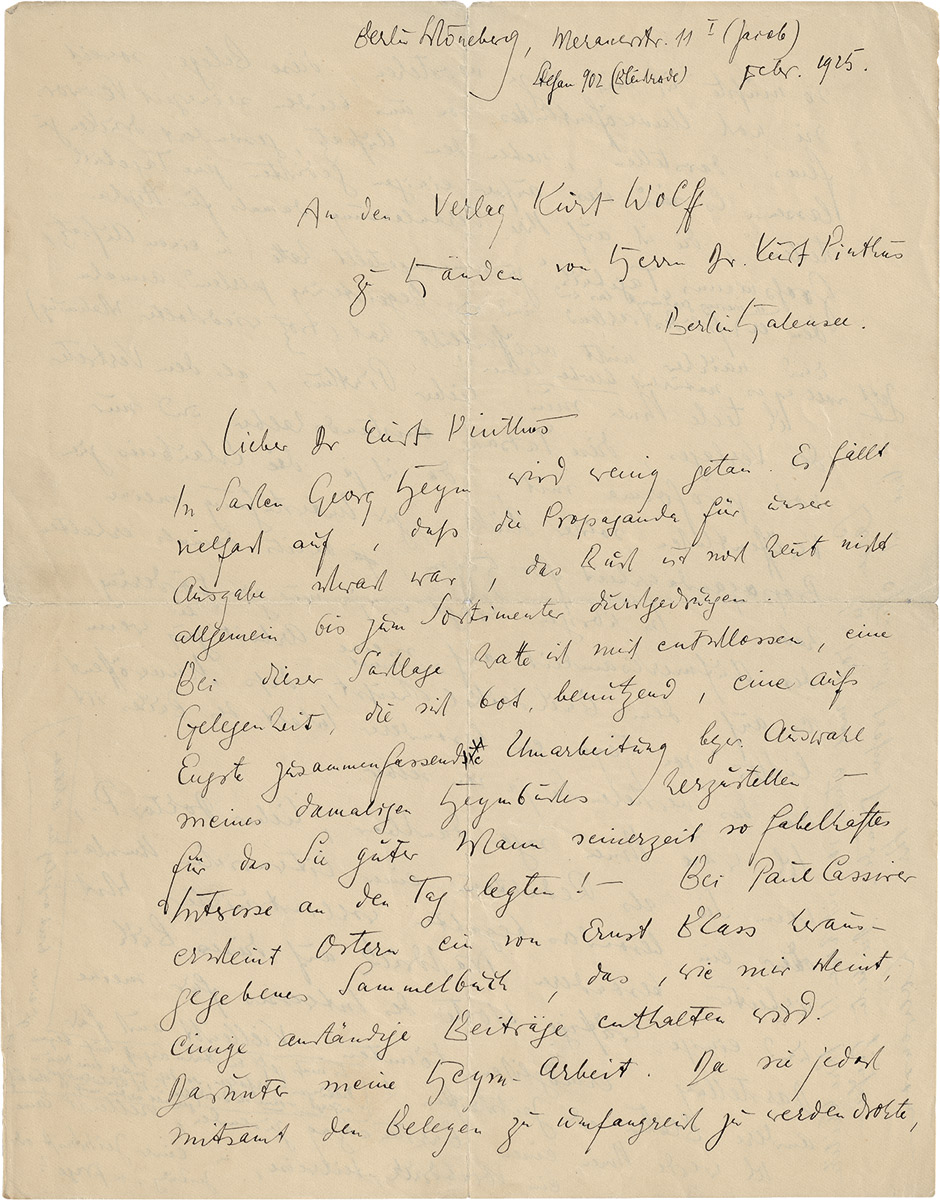 Berlin Schöneberg, Meranerstr. 11 I (Jacob)
Stefan 902 (Bleichrode) Febr. 1925.
An den Verlag Kurt Wolff
zu Händen von Herrn Dr. Kurt Pinthus
Berlin Halensee.
Lieber Dr Kurt Pinthus
In Sachen Georg Heym wird wenig getan. Es fällt
vielfach auf, daß die Propaganda für unsere
Ausgabe schwach war, das Buch ist noch heut nicht
allgemein bis zum Sortimenter durchgedrungen.
Bei dieser Sachlage hatte ich mich entschlossen, eine
Gelegenheit, die sich bot, benützend, eine aufs
Engste zusammenfassendste Umarbeitung bzw. Auswahl
meines damaligen Heymbuches herzustellen —
für das Sie guter Mann seinerzeit so fabelhaftes
Interesse an den Tag legten! — Bei Paul Cassirer
erscheint Ostern ein von Ernst Blass heraus-
gegebenes Sammelbuch, das, wie mir scheint,
einige anständige Beiträge enthalten wird.
Darunter meine Heym-Arbeit. Da sie jedoch
mitsamt den Belegen zu umfangreich zu werden drohte,